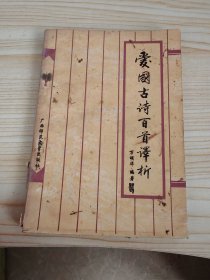 爱國古诗百首译析
编著
广西师范大学出版社